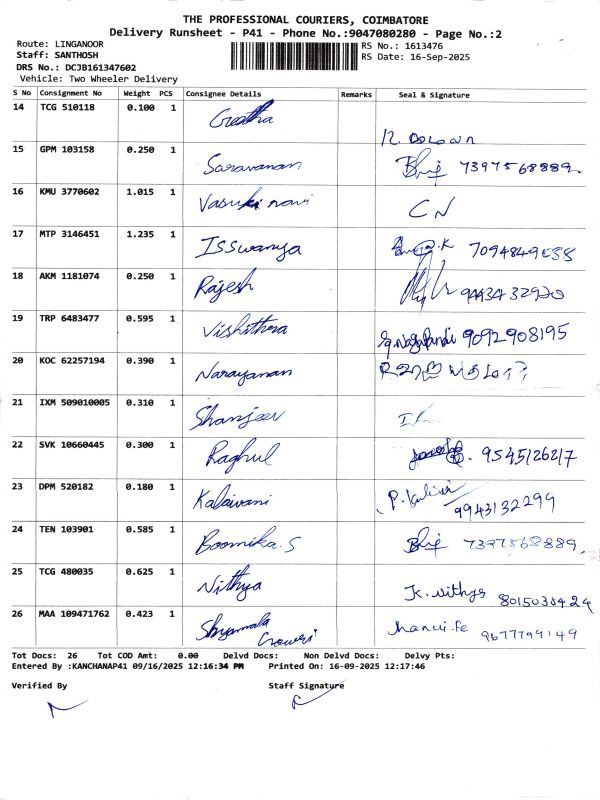 THE PROFESSIONAL COURIERS, COIMBATORE
Delivery Runsheet - P41 - Phone No.:9047080280 - Page No.:2
Route: LINGANOOR RS No.: 1613476
Staff: SANTHOSH RS Date: 16-Sep-2025
DRS No.: DCJB161347602
Vehicle: Two Wheeler Delivery
S No Consignment No Weight PCS Consignee Details Remarks Seal & Signature
14 TCG 510118 0.100 1 Geetha
15 GPM 103158 0.250 1 Saravanan 7397568889.
16 KMU 3770602 1.015 1 Vasuki ravi CN
17 MTP 3146451 1.235 1 Isswarya
18 AKM 1181074 0.250 1 Rajesh 9443432920
19 TRP 6483477 0.595 1 9092908195
20 KOC 62257194 0.390 1 Narayanan
21 IXM 509010005 0.310 1 Shanjeev
22 SVK 10660445 0.300 1 Raghul 9545126217
23 DPM 520182 0.180 1 Kalaivani
9943132299
24 TEN 103901 0.585 1 Boomika.S 7397568889.
25 TCG 480035 0.625 1 Nithya K. Nithya
26 MAA 109471762 0.423 1 Shyamala
Gowri
Tot Docs: 26 Tot COD Amt: 0.00 Delvd Docs: Non Delvd Docs: Delvy Pts:
Entered By :KANCHANAP41 09/16/2025 12:16:34 PM Printed On: 16-09-2025 12:17:46
Verified By Staff Signature